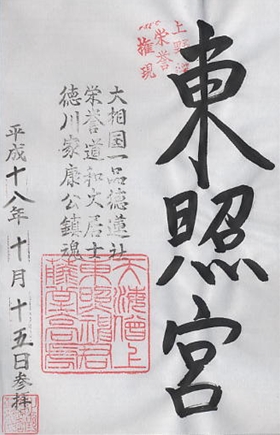 東照宮
上野
栄誉
権現
大相国一品徳蓮社
栄誉道和大居士
徳川家康公鎮魂
平成十八年十月十五日参拝